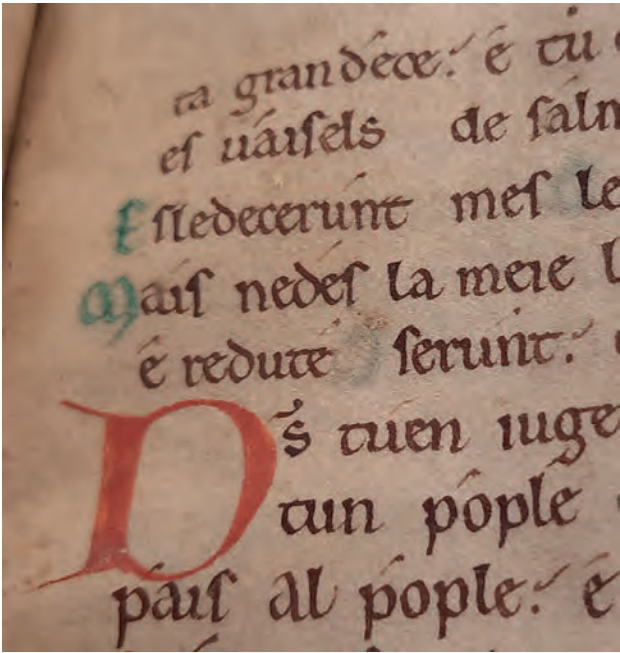 ta grandéce. é tú
es uáisels de salm
Esledecerunt mes le
Mais nedés la meie l
é redute serunt.
Ds tuen iuge
tun póple
páis al póple. é